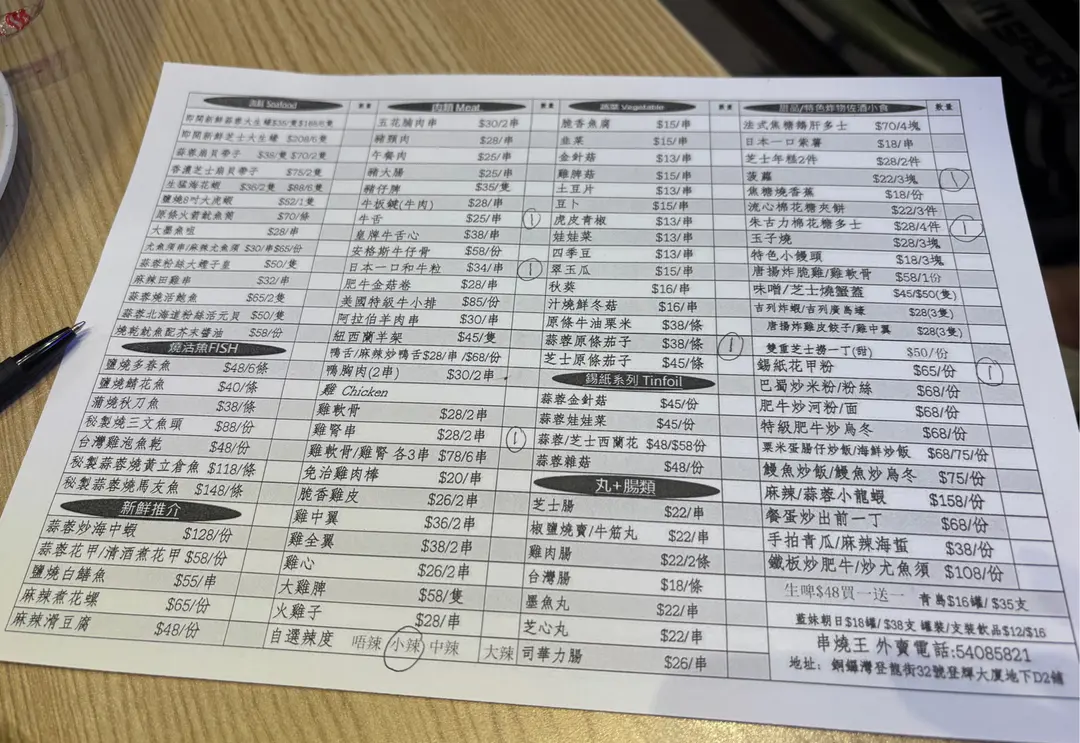 海鮮 Seafood 數量
即開新鮮蒜蓉大生蠔$35/隻$188/6隻
即開新鮮芝士大生蠔 $208/6隻
蒜蓉扇貝帶子 $38/隻 $70/2隻
香濃芝士扇貝帶子 $75/2隻
生猛海花蝦 $38/2隻 $88/6隻
鹽燒8吋大虎蝦 $52/1隻
原條火箭魷魚筒 $70/條
大墨魚咀 $28/串
尤魚須串/麻辣尤魚須 $30/串$65/份
蒜蓉粉絲大蟶子皇 $50/隻
麻辣田雞串 $32/串
蒜蓉燒活鮑魚 $65/2隻
蒜蓉北海道粉絲活元貝 $50/隻
燒乾魷魚配芥末醬油 $58/份
燒活魚FISH
鹽燒多春魚 $48/6條
鹽燒鯖花魚 $40/條
蒲燒秋刀魚 $38/條
秘製燒三文魚頭 $88/份
台灣雞泡魚乾 $48/份
秘製蒜蓉燒黃立倉魚 $118/條
秘製蒜蓉燒馬友魚 $148/條
新鮮推介
蒜蓉炒海中蝦 $128/份
蒜蓉花甲/清酒煮花甲 $58/份
鹽燒白鱔魚 $55/串
麻辣煮花螺 $65/份
麻辣滑豆腐 $48/份
肉類 Meat 數量
五花腩肉串 $30/2串
豬頸肉 $28/串
午餐肉 $25/串
豬大腸 $25/串
豬仔脾 $35/隻
牛板腱(牛肉) $28/串
牛舌 $25/串 1
皇牌牛舌心 $38/串
安格斯牛仔骨 $58/份
日本一口和牛粒 $34/串 1
肥牛金菇卷 $28/串
美國特級牛小排 $85/份
阿拉伯羊肉串 $30/串
紐西蘭羊架 $45/隻
鴨舌/麻辣炒鴨舌$28/串 /$68/份
鴨胸肉(2串) $30/2串
雞 Chicken
雞軟骨 $28/2串
雞腎串 $28/2串 1
雞軟骨/雞腎 各3串 $78/6串
免治雞肉棒 $20/串
脆香雞皮 $26/2串
雞中翼 $36/2串
雞全翼 $38/2串
雞心 $26/2串
大雞脾 $58/隻
火雞子 $28/串
自選辣度 唔辣 小辣 中辣 大辣
蔬菜 Vegetable 數量
脆香魚腐 $15/串
韭菜 $15/串
金針菇 $13/串
雞脾菇 $15/串
土豆片 $13/串
豆卜 $15/串
虎皮青椒 $13/串
娃娃菜 $13/串
四季豆 $13/串
翠玉瓜 $15/串
秋葵 $16/串
汁燒鮮冬菇 $16/串
原條牛油粟米 $38/條
蒜蓉原條茄子 $38/條 1
芝士原條茄子 $45/條
錫紙系列 Tinfoil
蒜蓉金針菇 $45/份
蒜蓉娃娃菜 $45/份
蒜蓉/芝士西蘭花 $48/$58份
蒜蓉雜菇 $48/份
丸+腸類
芝士腸 $22/串
椒鹽燒賣/牛筋丸 $22/串
雞肉腸 $22/2條
台灣腸 $18/條
墨魚丸 $22/串
芝心丸 $22/串
司華力腸 $26/串
甜品/特色炸物佐酒小食 數量
法式焦糖鵝肝多士 $70/4塊
日本一口紫薯 $18/串
芝士年糕2件 $28/2件
菠蘿 $22/3塊 1
焦糖燒香蕉 $18/份
流心棉花糖夾餅 $22/3件
朱古力棉花糖多士 $28/4件 1
玉子燒 $28/3塊
特色小饅頭 $18/3塊
唐揚炸脆雞/雞軟骨 $58/1份
味噌/芝士燒蟹蓋 $45/$50(隻)
吉列炸蝦/吉列廣島蠔 $28(3隻)
唐揚炸雞皮餃子/雞中翼 $28(3隻)
雙重芝士撈一丁(甜) $50/份
錫紙花甲粉 $65/份 1
巴蜀炒米粉/粉絲 $68/份
肥牛炒河粉/面 $68/份
特級肥牛炒烏冬 $68/份
粟米蛋腸仔炒飯/海鮮炒飯 $68/75/份
鰻魚炒飯/鰻魚炒烏冬 $75/份
麻辣/蒜蓉小龍蝦 $158/份
餐蛋炒出前一丁 $68/份
手拍青瓜/麻辣海蜇 $38/份
鐵板炒肥牛/炒尤魚須 $108/份
生啤$48買一送一 青島$16罐/ $35支
藍妹朝日$18罐/ $38支 罐裝/支裝飲品$12/$16
串燒王 外賣電話:54085821
地址: 銅鑼灣登龍街32號登輝大廈地下D2舖